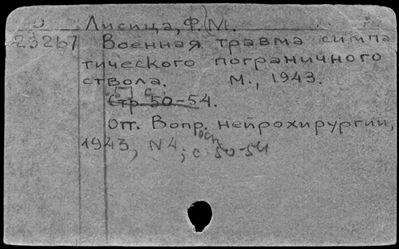 Лисица, Ф. М.
23267 Военная травма симпа
тического пограничного
ствола. М., 1943.
Стр. 50-54.
Отт. Вопр. нейрохирургии,
1943, N4, с. 50-54